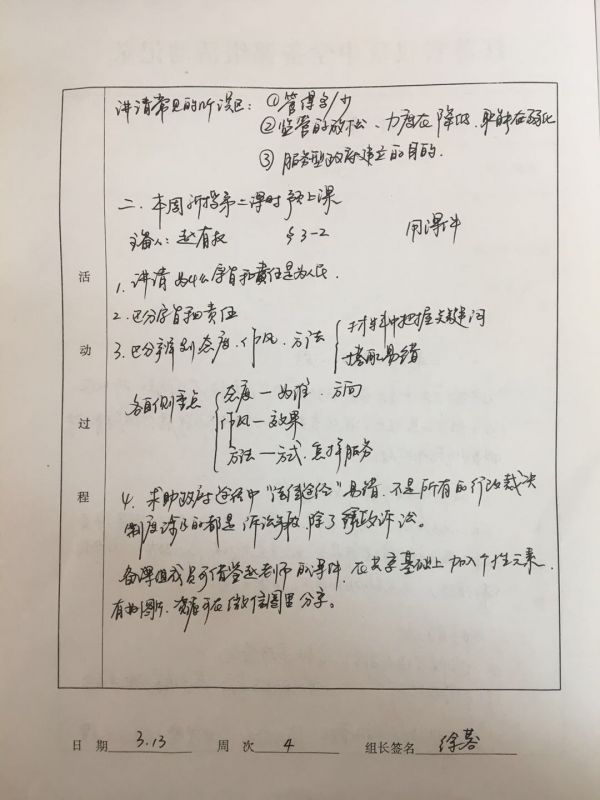 讲清常见的几误区：①管得多/少
②监管的放松、力度在降低、职能在弱化
③服务型政府建立的目的.
二、本周所授第二课时 课
主备人：赵有 §3-2 用课件
1. 讲清为什么宗旨和责任是为人民.
2. 区分宗旨和责任
3. 区分辨别态度、作风、方法 材料中把握关键词
搭配易错
各自侧重点 态度—为谁、方向
作风—效果
方法—方式、怎样服务
4. 求助政府途径中“法律途径”易错、不是所有的行政裁决
制度涉及的都是诉讼 、除了 政诉讼。
备课组成员可借鉴赵老师的课件、在共享基础上加入个性元素、
有如图片、资源可在微信圈里分享。
活
动
过
程
日 期 3.13 周 次 4 组长签名 徐